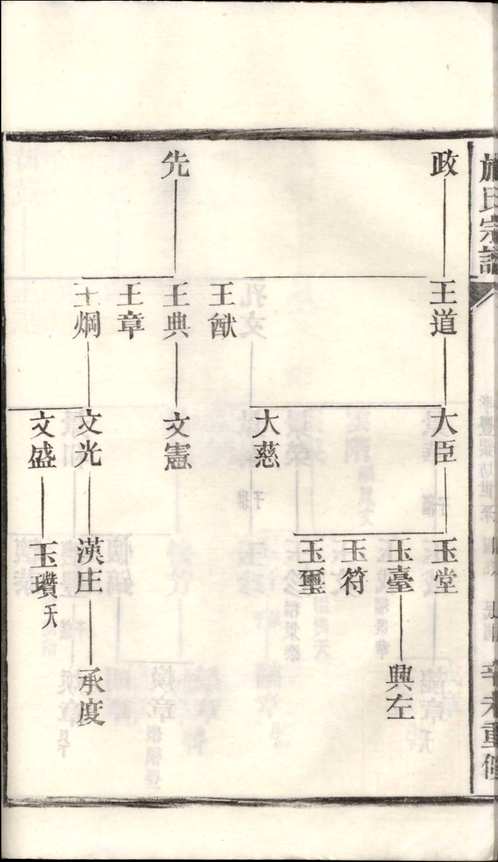 氏宗譜
辛未重修
政
先
王道
王猷
王典
王章
王烱
大臣
大慈
文憲
文光
文盛
玉堂
玉臺
玉符
玉璽
漢庄
玉瓚夭
興左
承度